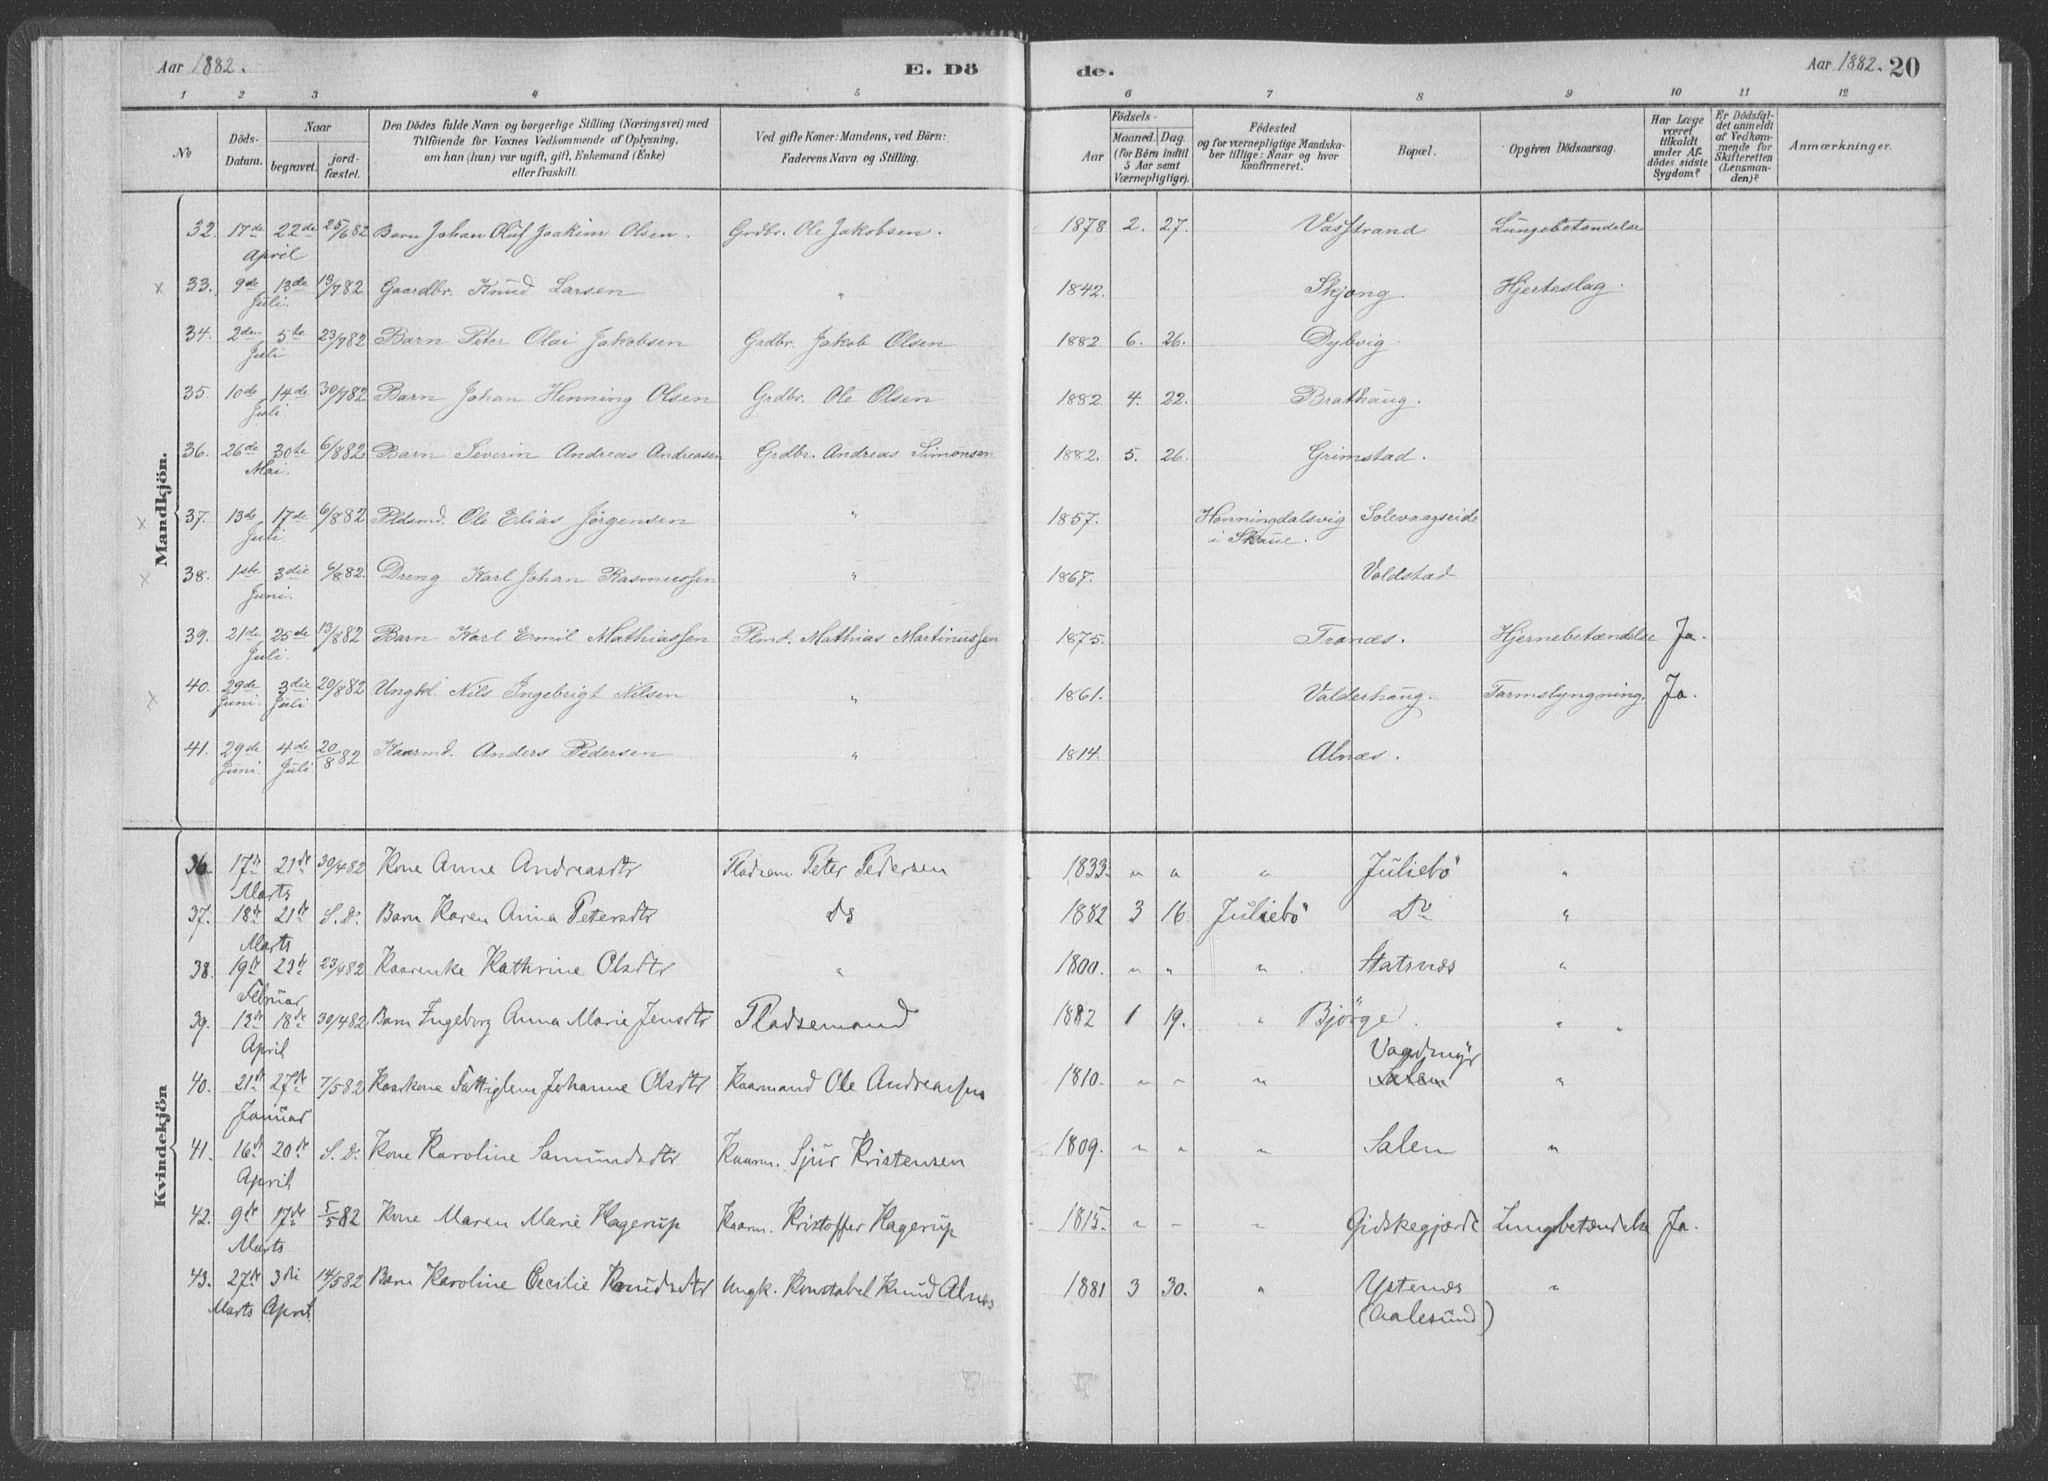 Aar 1882.
E. Dö
de.
Aar 1882. 20
1 2 3 4 5 6 7 8 9 10 11 12
№
Döds-Datum.
Naar
begravet.
jord-fæstet.
Den Dödes fulde Navn og borgerlige Stilling (Næringsvei) med
Tilföiende for Voxnes Vedkommende af Oplysning,
om han (hun) var ugift, gift, Enkemand (Enke)
eller fraskilt.
Ved gifte Koner: Mandens, ved Börn:
Faderens Navn og Stilling.
Födsels-
Aar
Maaned. Dag.
(for Börn indtil
5 Aar samt
Værnepligtige).
Födested
og for værnepligtige Mandska-
ber tillige: Naar og hvor
konfirmeret.
Bopæl.
Opgiven Dödsaarsag.
Har Læge
været
tilkaldt
under Af-
dödes sidste
Sygdom?
Er Dödsfal-
det anmeldt
af Vedkom-
mende for
Skifteretten
(Lensman-
den)?
Anmærkninger.
Mandkjön.
32. 17de April 22de 25/6 82 Barn Johan Oluf Joakim Olsen. Grdbr. Ole Jakobsen. 1878 2. 27. Vasstrand Lungebetændelse
x 33. 9de Juli 13de 13/7 82 Gaardbr. Knud Larsen " 1842. Skjong. Hjerteslag.
34. 2den Juli 5te 23/7 82 Barn Peter Olai Jakobsen Grdbr. Jakob Olsen 1882 6. 26. Dybvig.
35. 10de Juli 14de 30/7 82 Barn Johan Henning Olsen Grdbr. Ole Olsen 1882. 4. 22. Brathaug.
36. 26de Mai 30te 6/8 82 Barn Severin Andreas Andreasen Grdbr. Andreas Simonsen 1882. 5. 26. Grimstad.
x 37. 13de Juli 17de 6/8 82 Pldsmd. Ole Elias Jörgensen " 1857. Honningdalsvig i Skaue. Solevaagseide
x 38. 1ste Juni 3die 6/8 82. Dreng Karl Johan Rasmussen " 1867. Voldstad
39. 21de Juli 25de 13/8 82 Barn Karl Emil Mathiassen Plmd. Mathias Martinussen 1875. Tranæs. Hjernebetændelse Ja.
x 40. 29de Juni. 3die Juli 20/8 82 Ungkl Nils Ingebrigt Nilsen " 1861. Valderhaug. Tarmslyngning. Ja.
41. 29de Juni. 4de Juli 20/8 82 Kaarmd. Anders Pedersen " 1814. Alnæs.
Kvindekjön
36. 17de Marts 21de 30/4 82 Kone Anne Andreasdtr Pladsem. Peter Pedersen 1833. " " " Juliebö "
37. 18de Marts 21de S. D. Barn Karen Anna Petersdtr Ds 1882 3 16 Juliebö Do "
38. 19de Februar 23de 23/4 82 Kaarenke Kathrine Olsdtr " 1800. " " " Statsnæs "
39. 12de April 18de 30/4 82 Barn Ingeborg Anna Marie Jensdtr Pladsemand 1882 1 19. " Bjørge. "
40. 21de Januar 27de 7/5 82 Kaarkone Fattiglem Johanne Olsdtr Kaarmand Ole Andreassen 1810. " " " Vagdmyr Salem "
41. 16de April 20de S. D. Kone Karoline Samundsdtr Kaarm. Sjur Kristensen 1809. " " " Salen "
42. 9de Marts 17de 5/5 82 Kone Maren Marie Hagerup Kaarm. Kristoffer Hagerup 1815. " " " Gidskegjærde Lungebetændelse Ja.
43. 27de Marts 3di April 14/5 82 Barn Karoline Cecilie Knudsdtr Ungk. Konstabel Knud Alnæs 1881 3 30. " Ystenæs (Aalesund) "